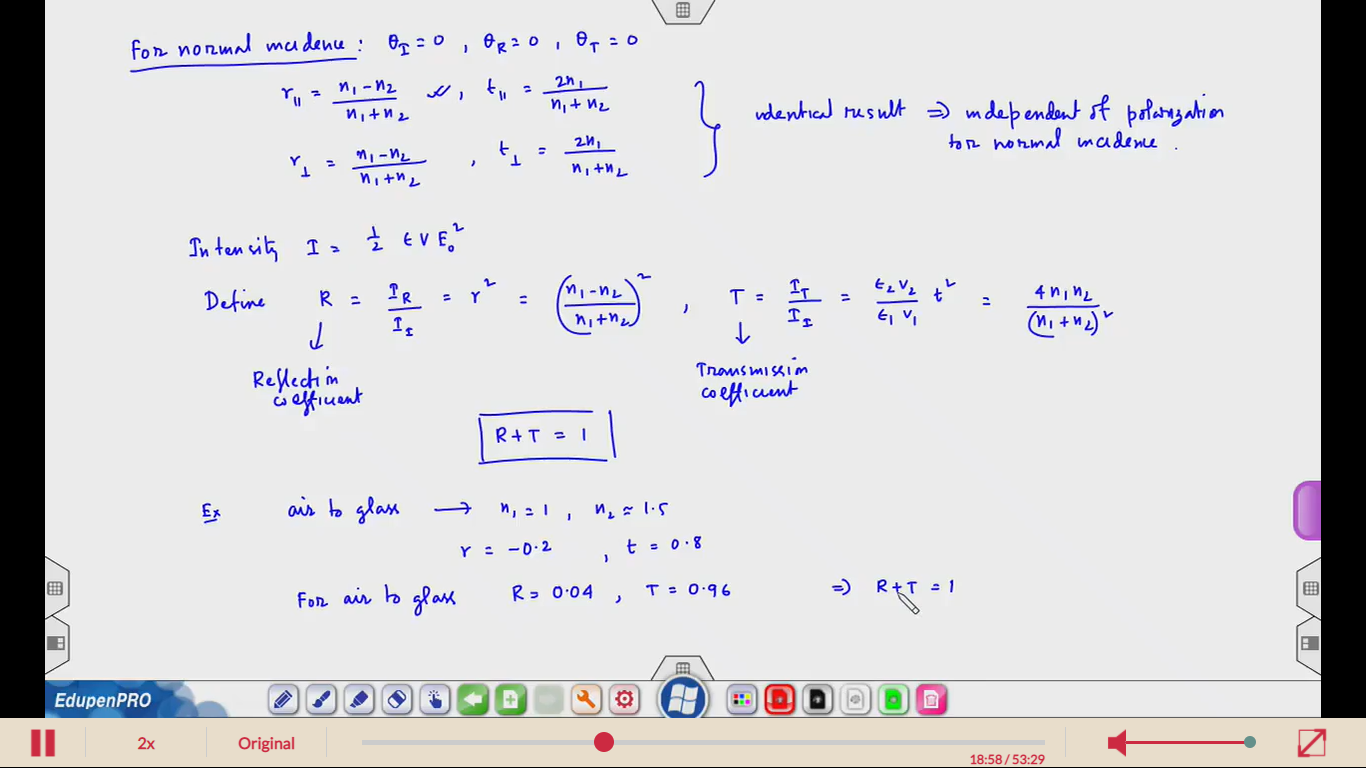 For normal incidence : θ_I = 0 , θ_R = 0 , θ_T = 0
r_∥ = (n₁ - n₂)/(n₁ + n₂) , t_∥ = 2n₁/(n₁ + n₂)
r_⊥ = (n₁ - n₂)/(n₁ + n₂) , t_⊥ = 2n₁/(n₁ + n₂)
identical result ⇒ independent of polarization
for normal incidence .
Intensity I = 1/2 ϵ v E₀²
Define R = I_R/I_I = r² = ((n₁ - n₂)/(n₁ + n₂))² , T = I_T/I_I = (ϵ₂ v₂)/(ϵ₁ v₁) t² = 4 n₁ n₂/(n₁ + n₂)²
Reflection
coefficient
Transmission
coefficient
R + T = 1
Ex air to glass ⟶ n₁ = 1 , n₂ ≈ 1.5
r = -0.2 , t = 0.8
For air to glass R = 0.04 , T = 0.96 ⇒ R + T = 1
EdupenPRO
2x Original
18:58 / 53:29